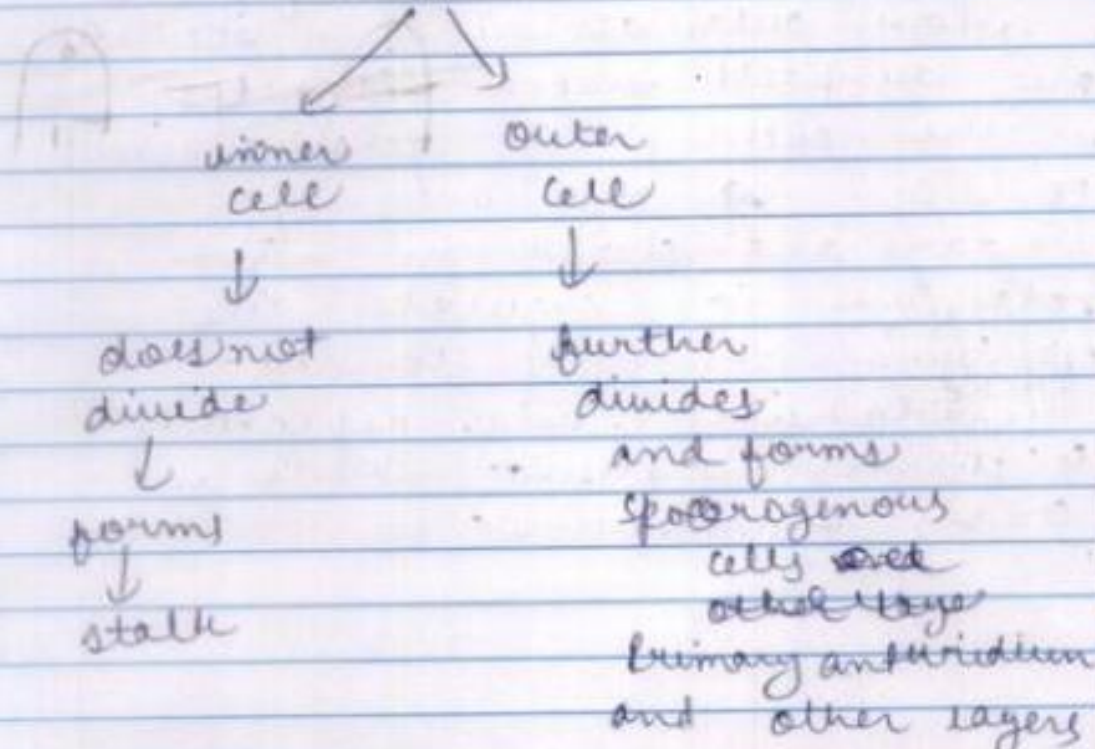 inner
cell
does not
divide
forms
stalk
outer
cell
further
divides
and forms
sporogenous
cells and
other laye
Primary antheridium
and other layers